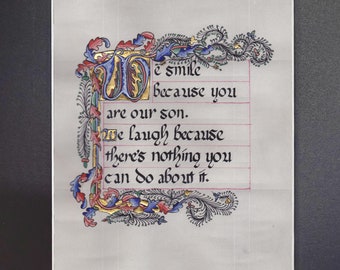 We smile
because you
are our son.
We laugh because
there's nothing you
can do about it.